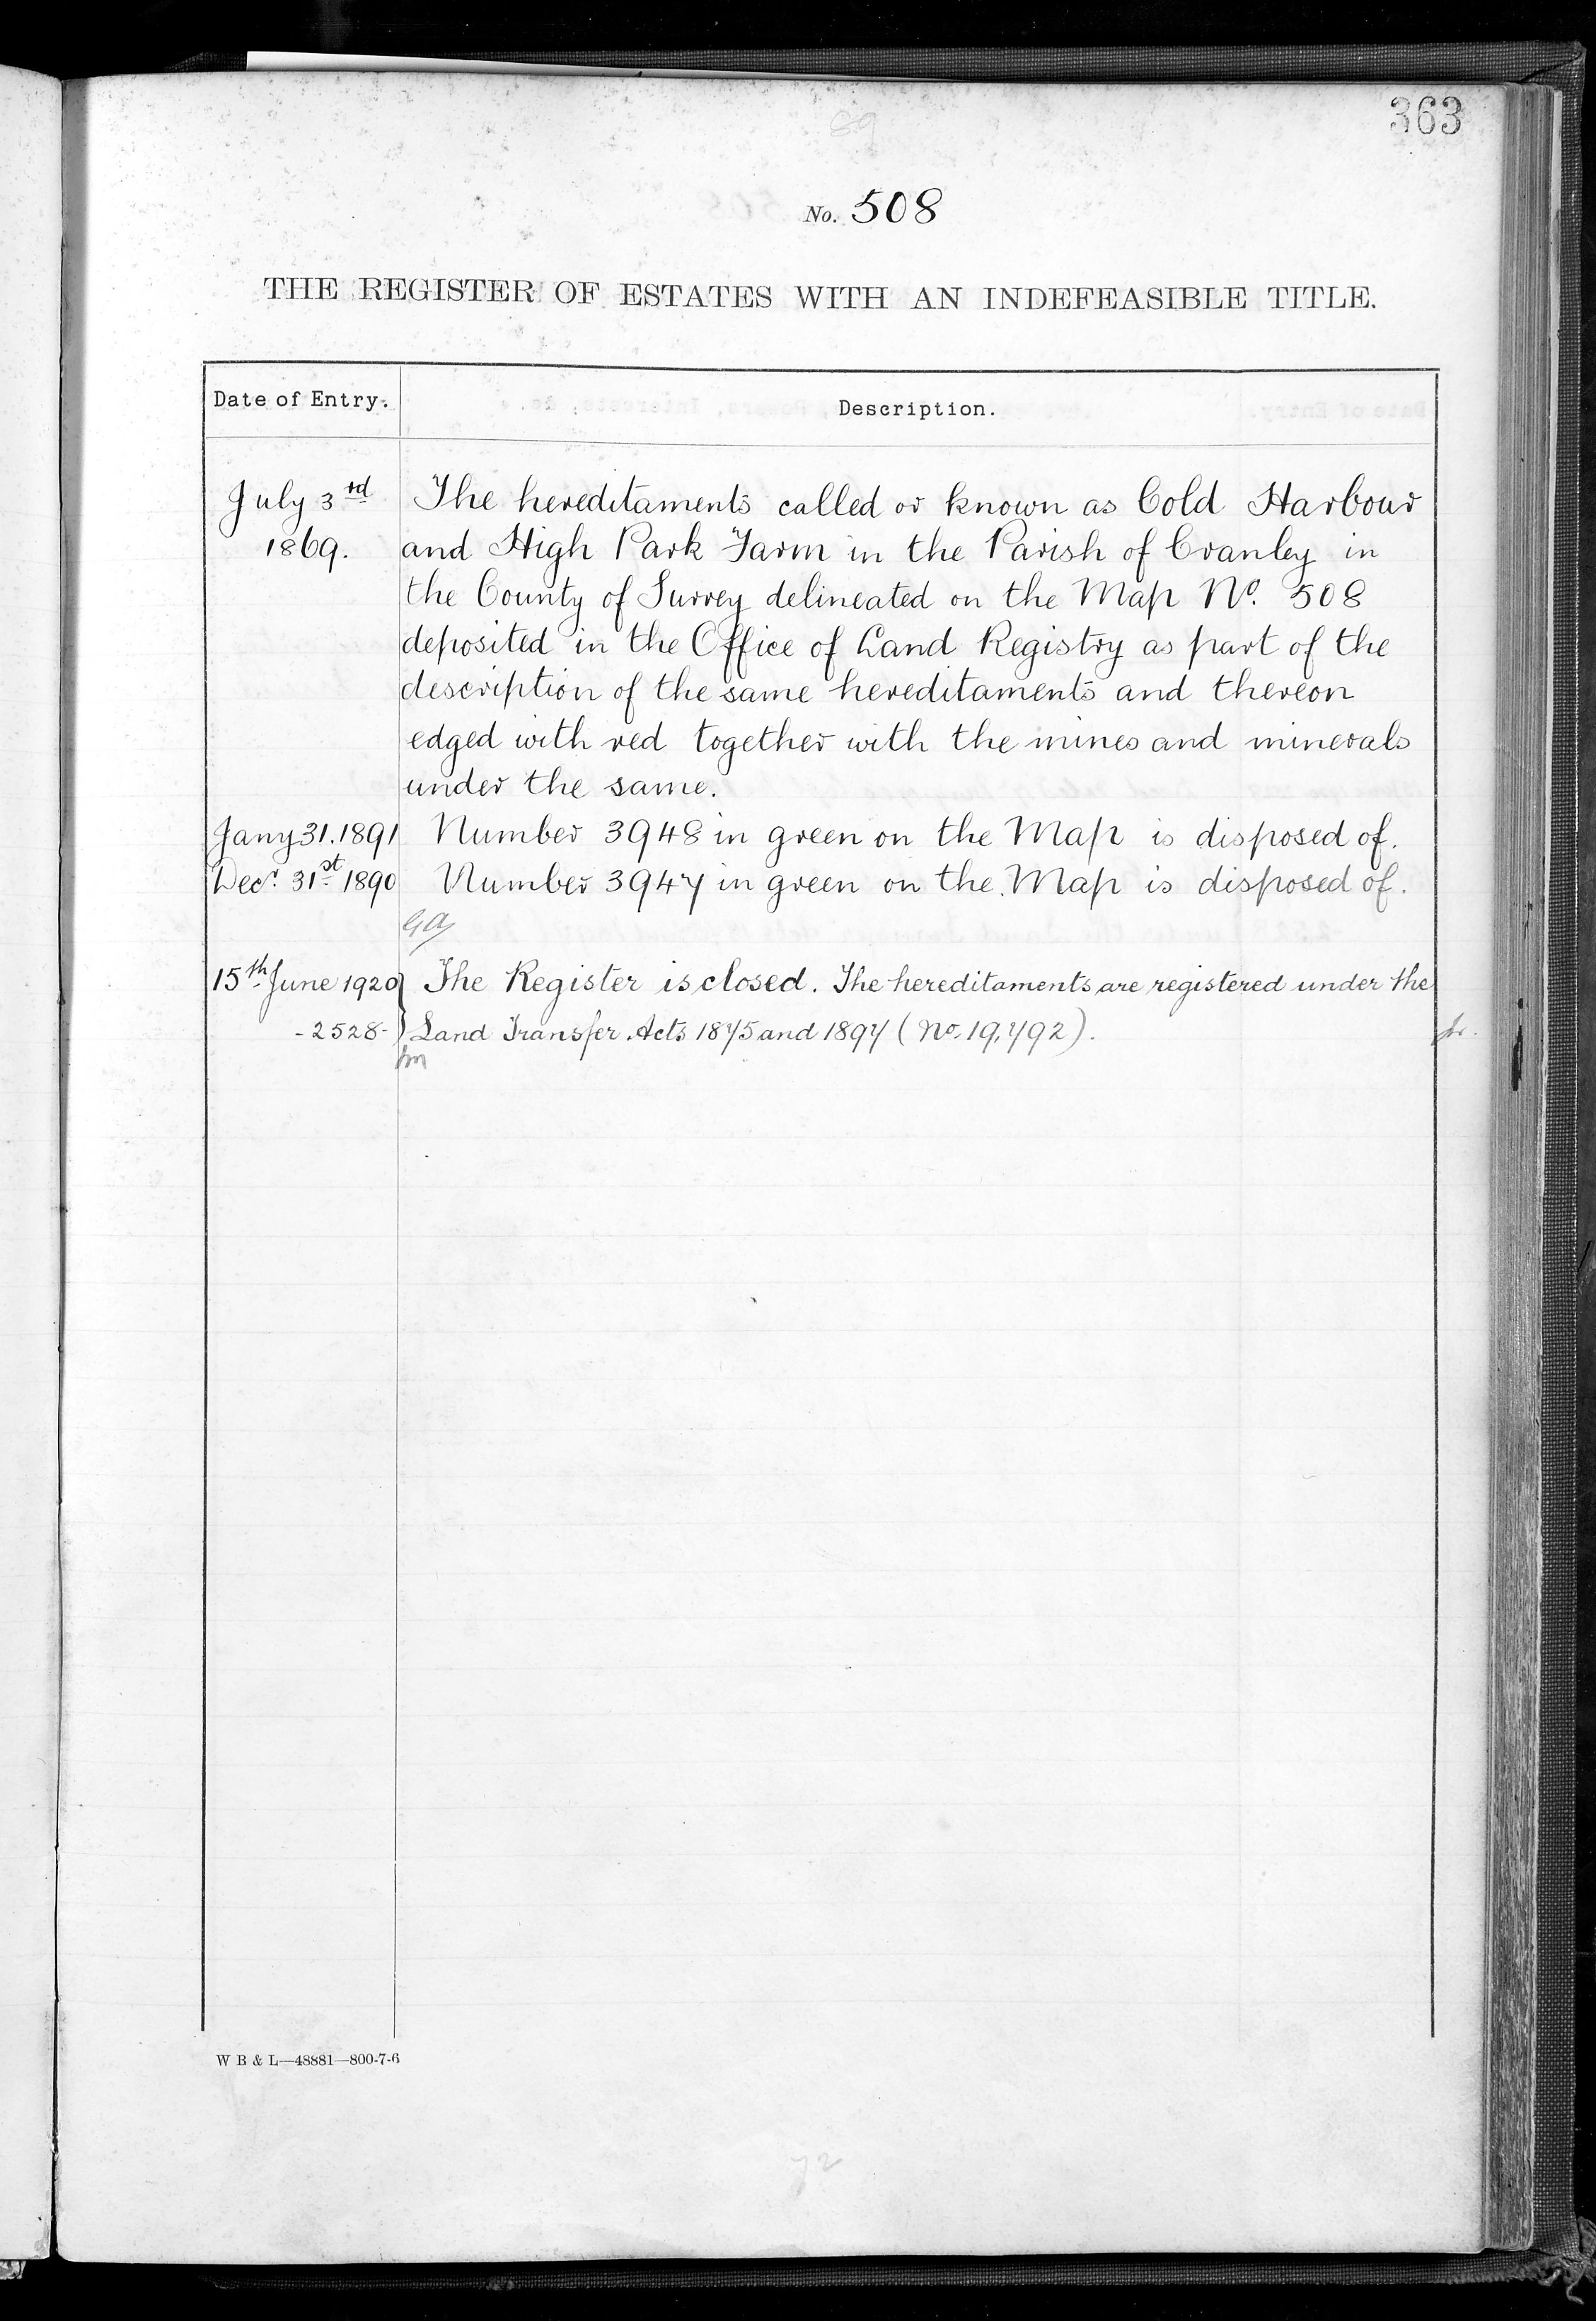 363
No. 508
THE REGISTER OF ESTATES WITH AN INDEFEASIBLE TITLE.
Date of Entry. Description.
July 3rd The hereditaments called or known as Cold Harbour
1869. and High Park Farm in the Parish of Cranley in
the County of Surrey delineated on the Map No. 508
deposited in the Office of Land Registry as part of the
description of the same hereditaments and thereon
edged with red together with the mines and minerals
under the same.
Jany 31. 1891 Number 3948 in green on the Map is disposed of.
Decr. 31st 1890 Number 3947 in green on the Map is disposed of.
15th June 1920 The Register is closed. The hereditaments are registered under the
-2528- Land Transfer Acts 1875 and 1897 (No. 19,792).
W B & L—48881—800-7-6
72